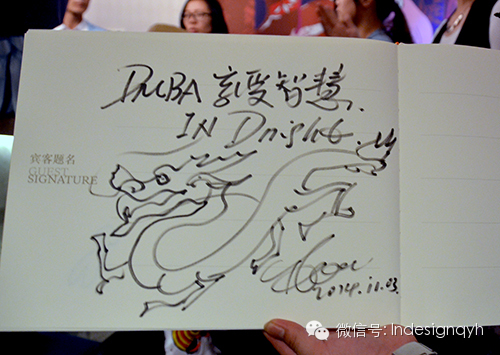 DMBA 享受智慧.
IN Dnight.
宾客题名
GUEST
SIGNATURE
2014.11.03.
微信号: Indesignqyh